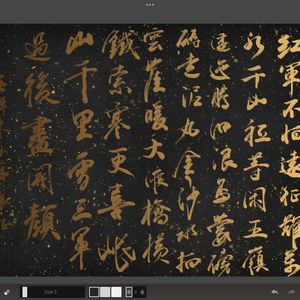 紅軍不怕遠征難萬
水千山祇等閑五嶺
逶迤騰細浪烏蒙磅
礴走泥丸金沙水拍
雲崖暖大渡橋橫
鐵索寒更喜岷
山千里雪三軍
過後盡開顏
Size 5